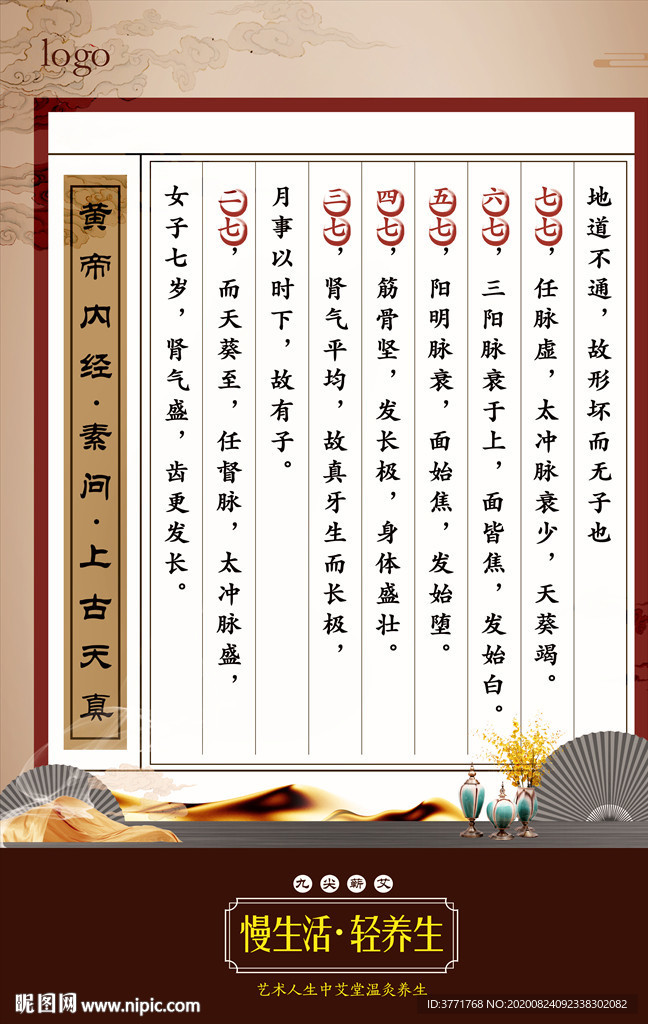 logo
黄帝内经·素问·上古天真
女子七岁，肾气盛，齿更发长。
二七，而天葵至，任督脉，太冲脉盛，
月事以时下，故有子。
三七，肾气平均，故真牙生而长极，
四七，筋骨坚，发长极，身体盛壮。
五七，阳明脉衰，面始焦，发始堕。
六七，三阳脉衰于上，面皆焦，发始白。
七七，任脉虚，太冲脉衰少，天葵竭。
地道不通，故形坏而无子也
九尖蕲艾
慢生活·轻养生
艺术人生中艾堂温灸养生
昵图网 www.nipic.com
ID:3771768 NO:20200824092338302082